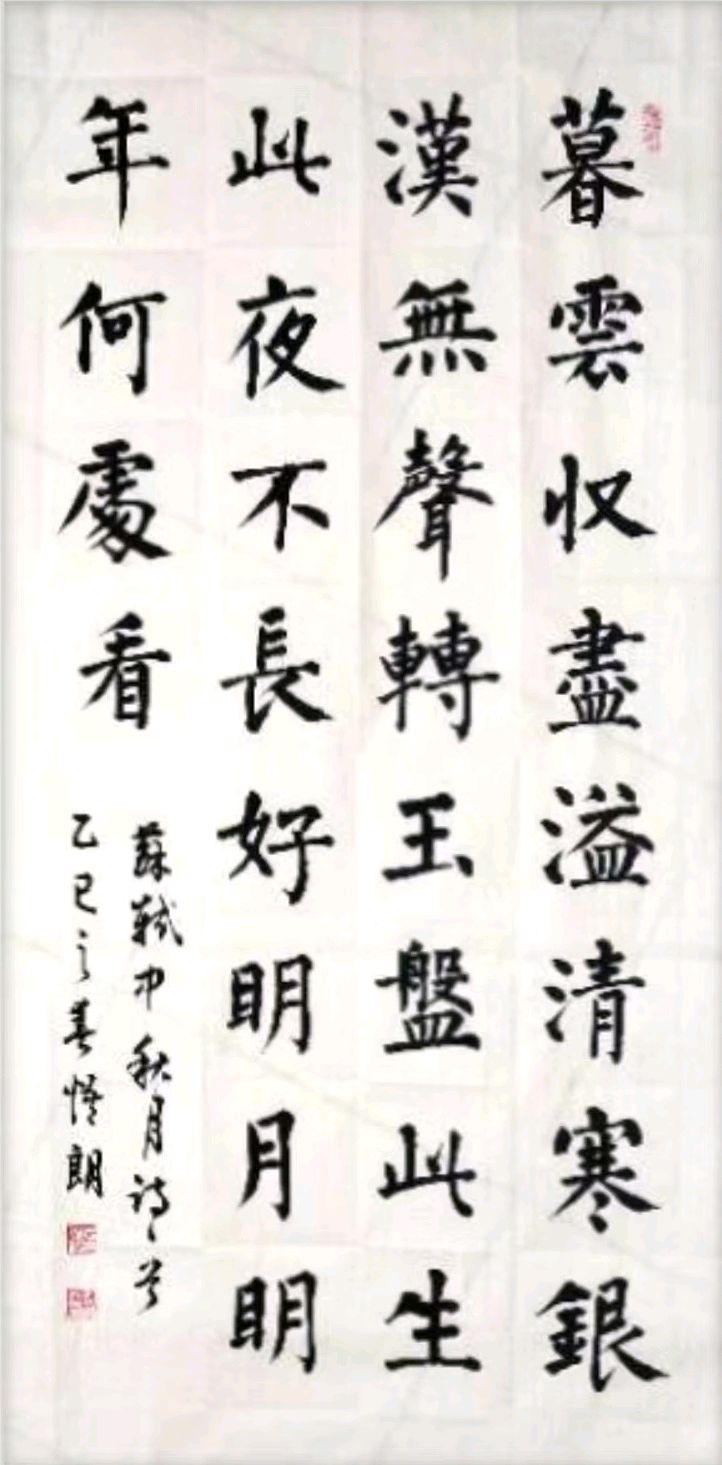 暮雲収盡溢清寒銀
漢無聲轉玉盤此生
此夜不長好明月明
年何處看
蘇軾中秋月詩一首
乙巳之春悟朗